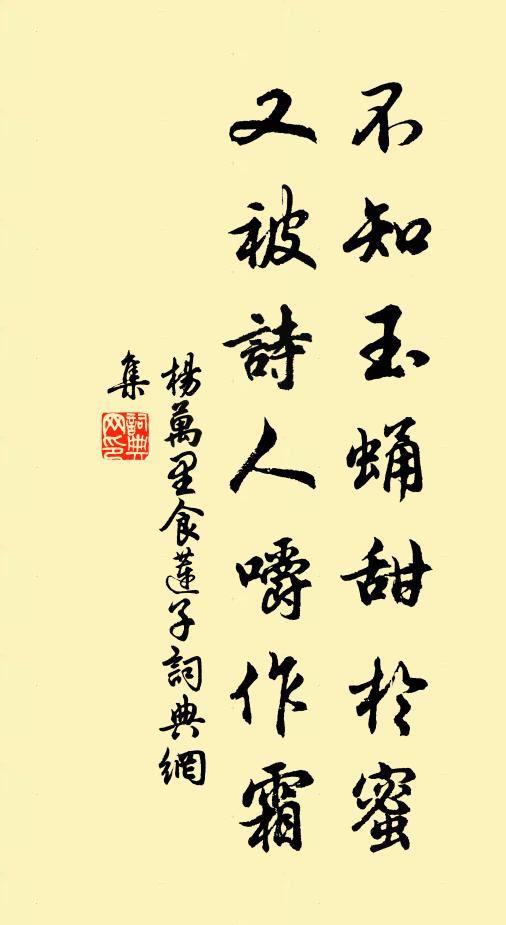 不知玉蛹甜於蜜
又被詩人嚼作霜
楊萬里食蓮子詞典網
集
詞典
网印